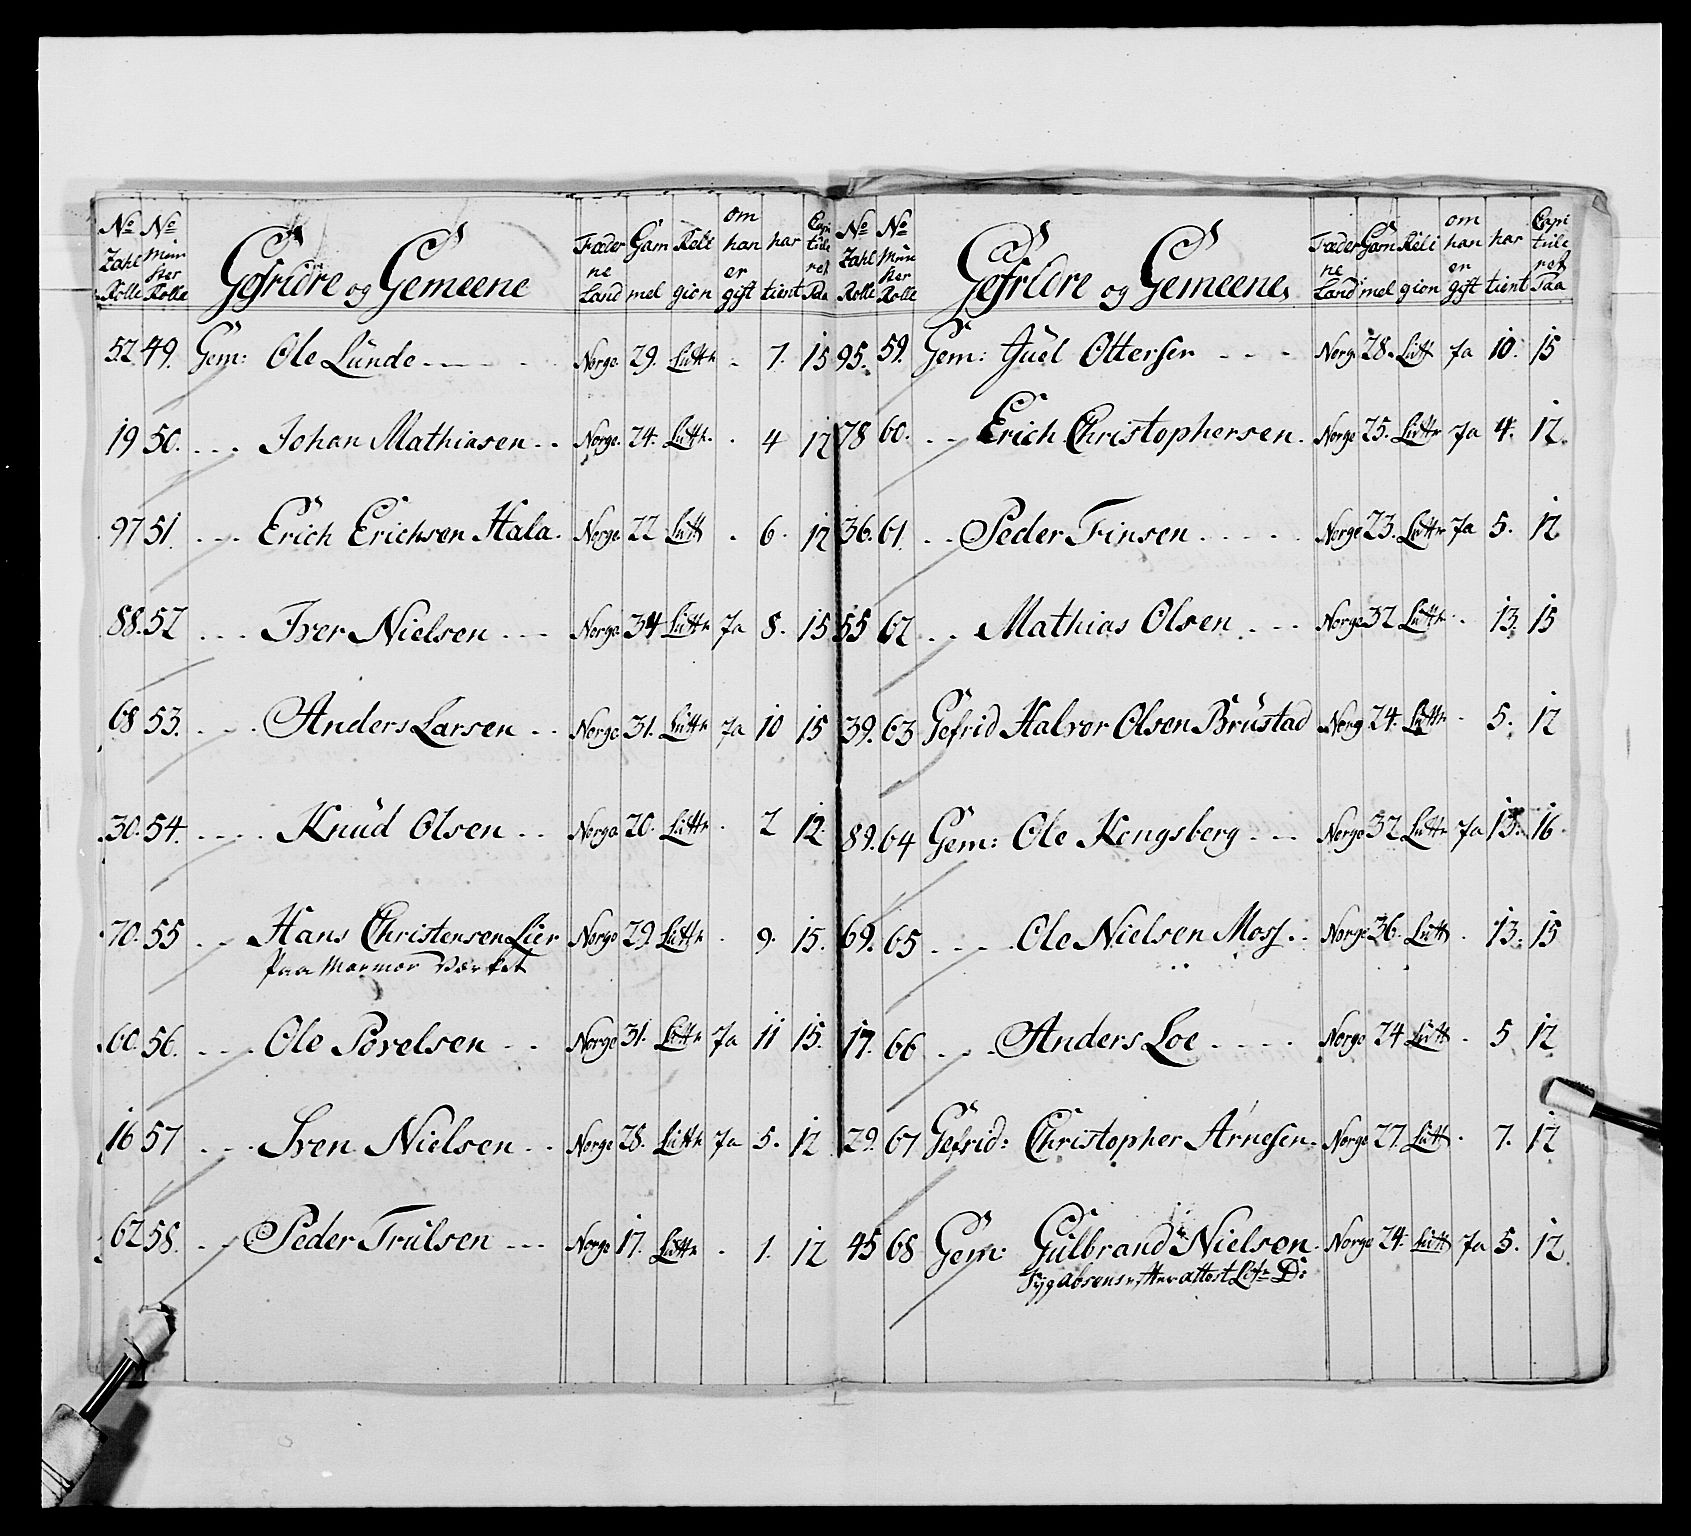 No Zahl Rolle | No Mün ster Rolle | Gefridre og Gemeene | Fæder ne Land | Gam mel | Reli gion | om han er gift | har tient | Capi tule ret Paa
52 49. Gem: Ole Lünde - - - Norge 29. Lütth - 7. 15
19 50. - - - Johan Mathiasen - - Norge. 24. Lütth. - 4 12
97 51. - - - Erich Erichsen Hala. Norge 22 Lütt - 6. 12
88. 52 - - - Iver Nielsen - - - Norge 34 Lütth Ja 8. 15
68 53. - - - Anders Larsen - - Norge 31. Lütth Ja 10 15
30. 54. - - - Knüd Olsen - - Norge 20. Lütth - 2 12.
70. 55 - - Hans Christensen Lier Norge 29. Lütth - 9. 15.
Paa Marmor Værket
60. 56. - - - Ole Povelsen - - Norge 31. Lütth Ja 11 15.
16 57 - - - Sven Nielsen - - Norge 28. Lütth Ja 5. 12
62 58. - - Peder Trülsen - - - Norge 17. Lütth - 1. 12
No Zahl Rolle | No Mün ster Rolle | Gefridre og Gemeene | Fæder ne Land | Gam mel | Reli gion | om han er gift | har tient | Capi tule ret Paa
95. 59. Gem: Jüel Ottersen - - - Norge 28. Lütt Ja 10. 15
78 60. - - Erich Christophersen. Norge 25. Lütth Ja 4. 12.
36. 61. - - Peder Finsen - - - - Norge 23. Lütth Ja 5. 12
55 62 - - Mathias Olsen - - - Norge 32 Lütth - 13. 15
39. 63 Gefrid Halvor Olsen Brüstad Norg 24. Lütth - 5. 12
89. 64 Gem: Ole Kongsberg - - - Norge 32 Lütth Ja 13. 16.
69. 65 - - - Ole Nielsen Moss - - Norge 36. Lütt - 13. 15
17. 66 - - - Anders Loe - - - - Norge 24 Lütt - 5 12
29. 67 Gefrid: Christopher Arnesen - Norge 27. Lütt - 7. 12
45 68 Gem: Gülbrand Nielsen Norge 24. Lütt Ja 5. 12
Syg absens efter attest Litr D: